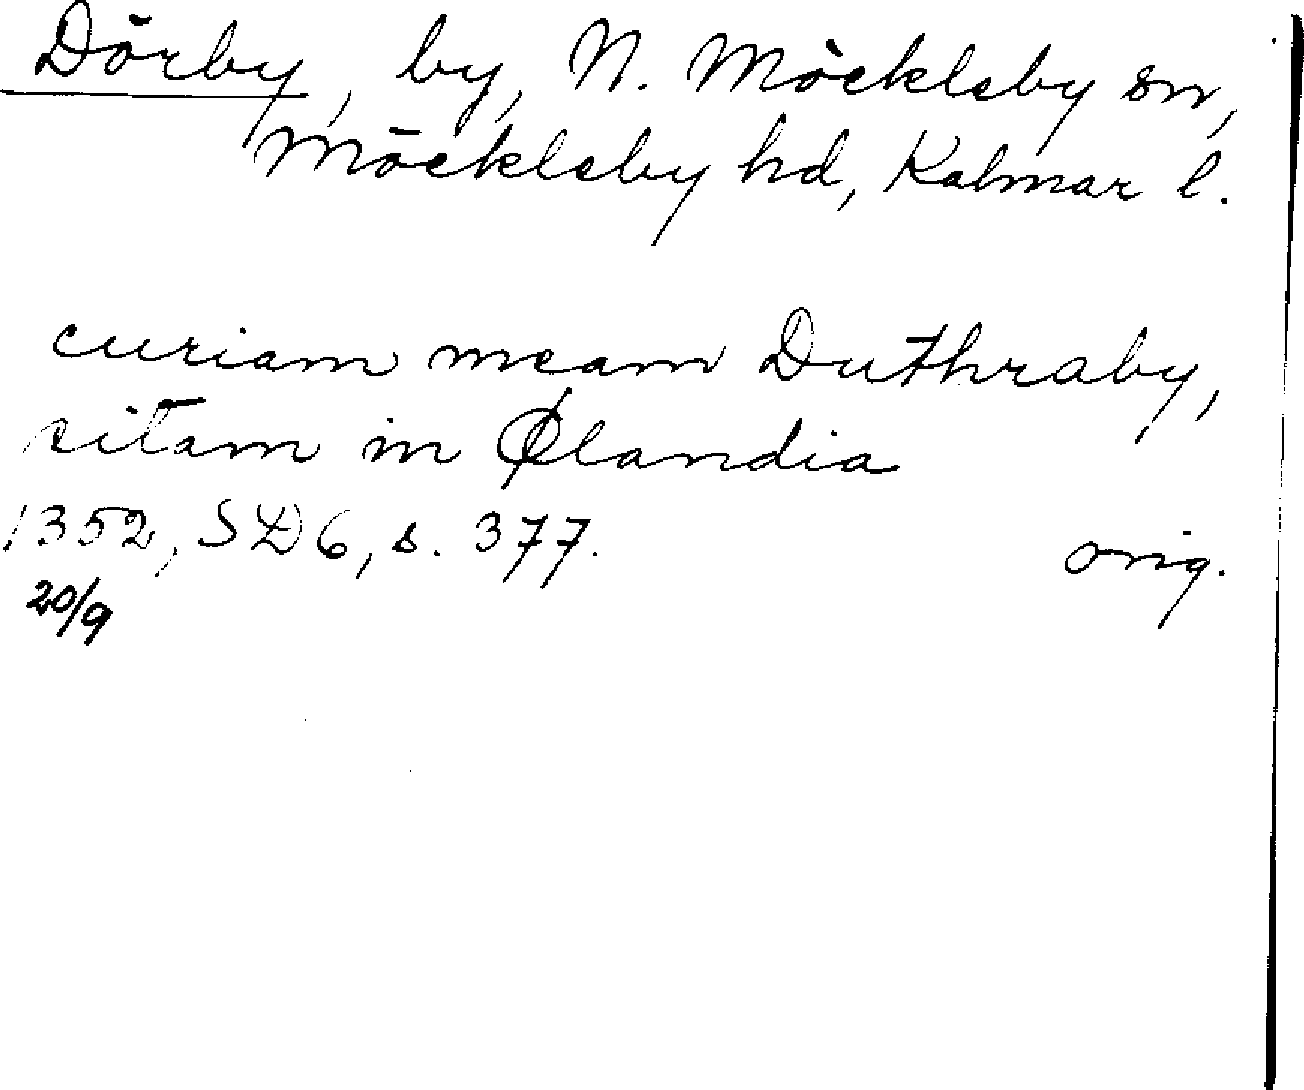 Dörby, by, N. Möckleby sn,
Möckleby hd, Kalmar l.
curiam meam Duthraby,
sitam in Ølandia
1352, SD6, s. 377. orig.
20/9